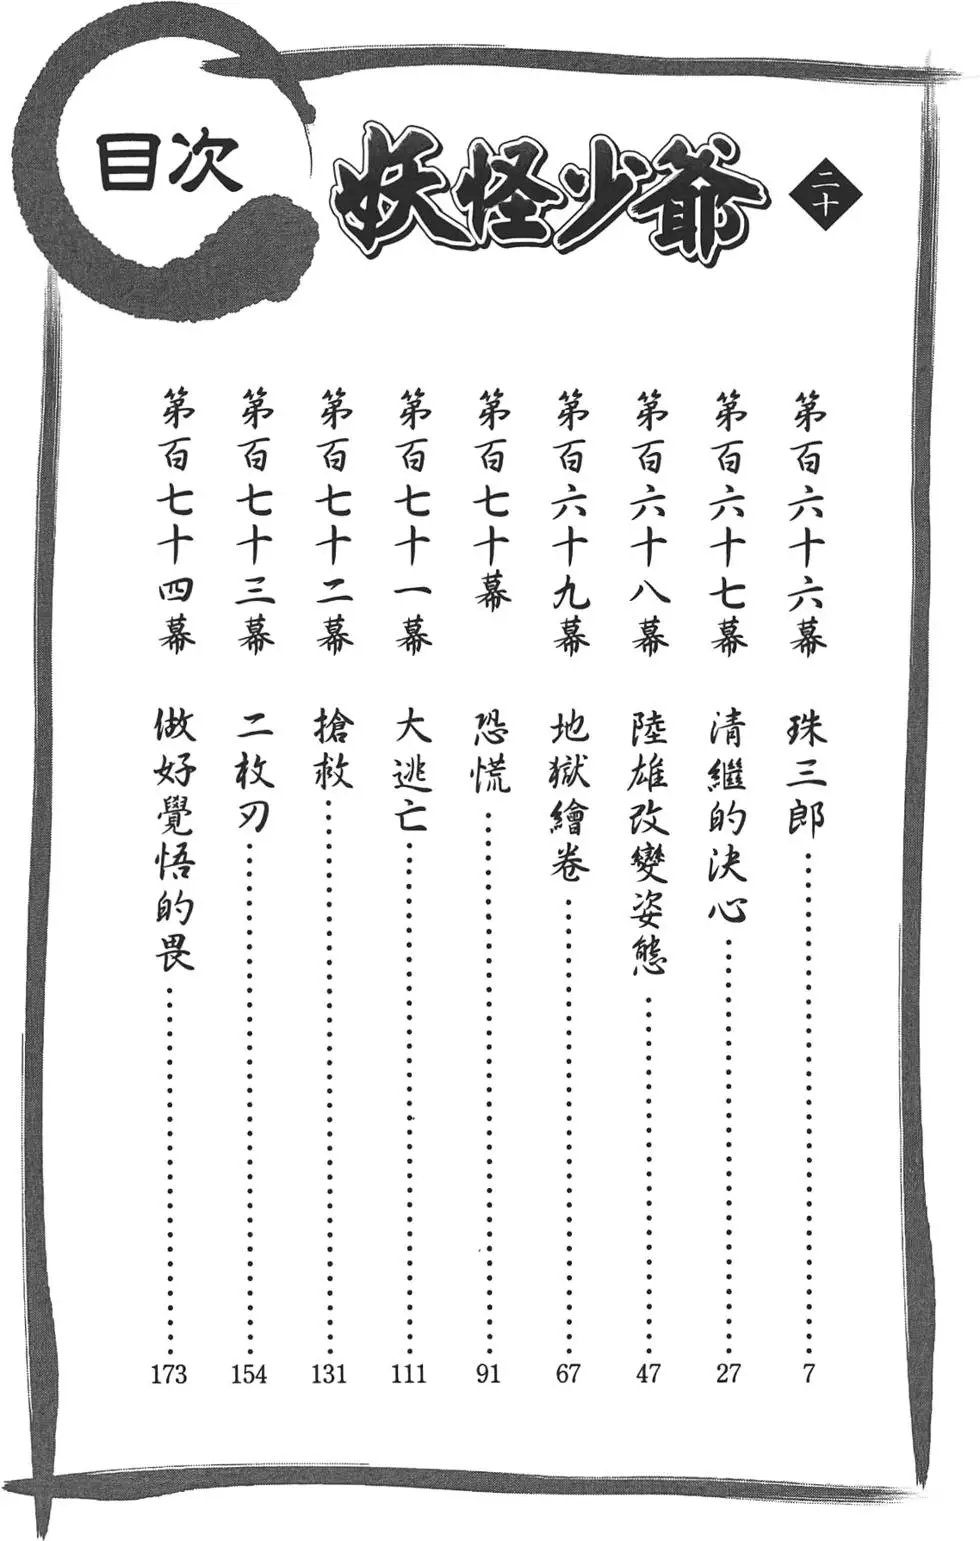 目次
妖怪少爺
二十
第百六十六幕 珠三郎 7
第百六十七幕 清繼的決心 27
第百六十八幕 陸雄改變姿態 47
第百六十九幕 地獄繪卷 67
第百七十幕 恐慌 91
第百七十一幕 大逃亡 111
第百七十二幕 搶救 131
第百七十三幕 二枚刃 154
第百七十四幕 做好覺悟的畏 173